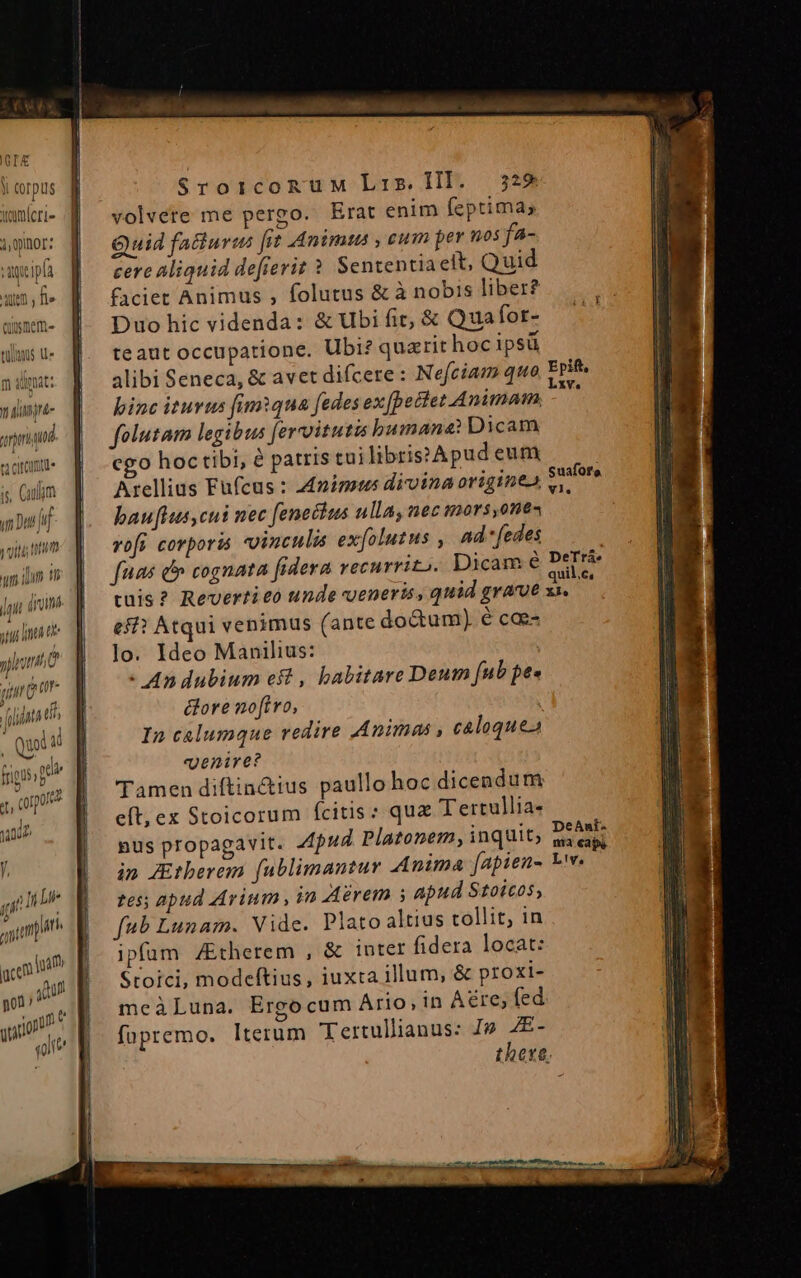 Stoiconum Lib. III. 329
volvere me pergo. Erat enim ſeptima,
Quid facturus ſit Animus, cum per nos fa-
cere aliquid deſierit? Sententia eſt, Quid
faciet Animus, ſolutus & à nobis liber?
Duo hic videnda: & Ubi ſit, & Qua for-
te aut occupatione. Ubi? quærit hoc ipsũ
alibi Seneca, & avet diſcere: Neſciam quo
Epiſt.
LXV.
hinc iturus ſim? qua ſedes exſpectet Animam,
ſolutam legibus ſervitutis humanæ? Dicam
ego hoc tibi, è patris tui libris? Apud eum
Arellius Fuſcus: Animus divina origine
Suaſora
VI.
hauſtus, cui nec ſenectus ulla, nec mors, one-
roſi corporis vinculis exſolutus, ad ſedes
ſuas & cognata ſidera recurrit. Dicam è
De Trā-
quil. c.
XI.
tuis? Reverti eo unde veneris, quid grave
eſt? Atqui venimus (ante doctum) è cœ-
lo. Ideo Manilius:
* An dubium eſt, habitare Deum ſub pe-
ctore noſtro,
In cælumque redire Animas, cæloque
venire?
Tamen diſtinctius paullo hoc dicendum
eſt, ex Stoicorum ſcitis: quæ Tertullia-
nus propagavit. Apud Platonem, inquit,
De Ani-
ma cap.
LIV.
in Ætherem ſublimantur Animæ ſapien-
tes; apud Arium, in Aërem; apud Stoicos,
ſub Lunam. Vide. Plato altius tollit, in
ipſum Ætherem, & inter ſidera locat:
Stoici, modeſtius, iuxta illum, & proxi-
me à Luna. Ergo cum Ario, in Aëre, ſed
ſupremo. Iterum Tertullianus: In Æ-
there.